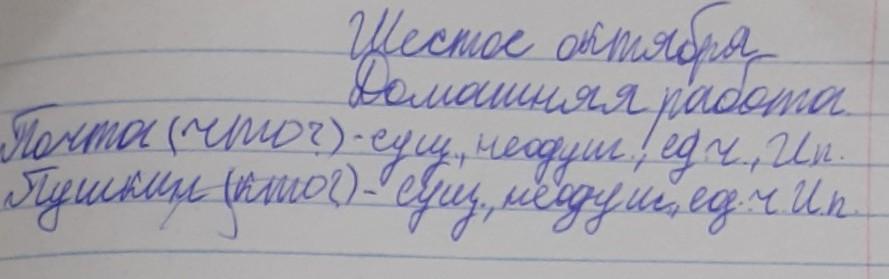 Шестое октября
Домашняя работа
Почта (что?) - сущ., неодуш., ед.ч., И.п.
Пушкин (кто?) - сущ., неодуш., ед.ч. И.п.